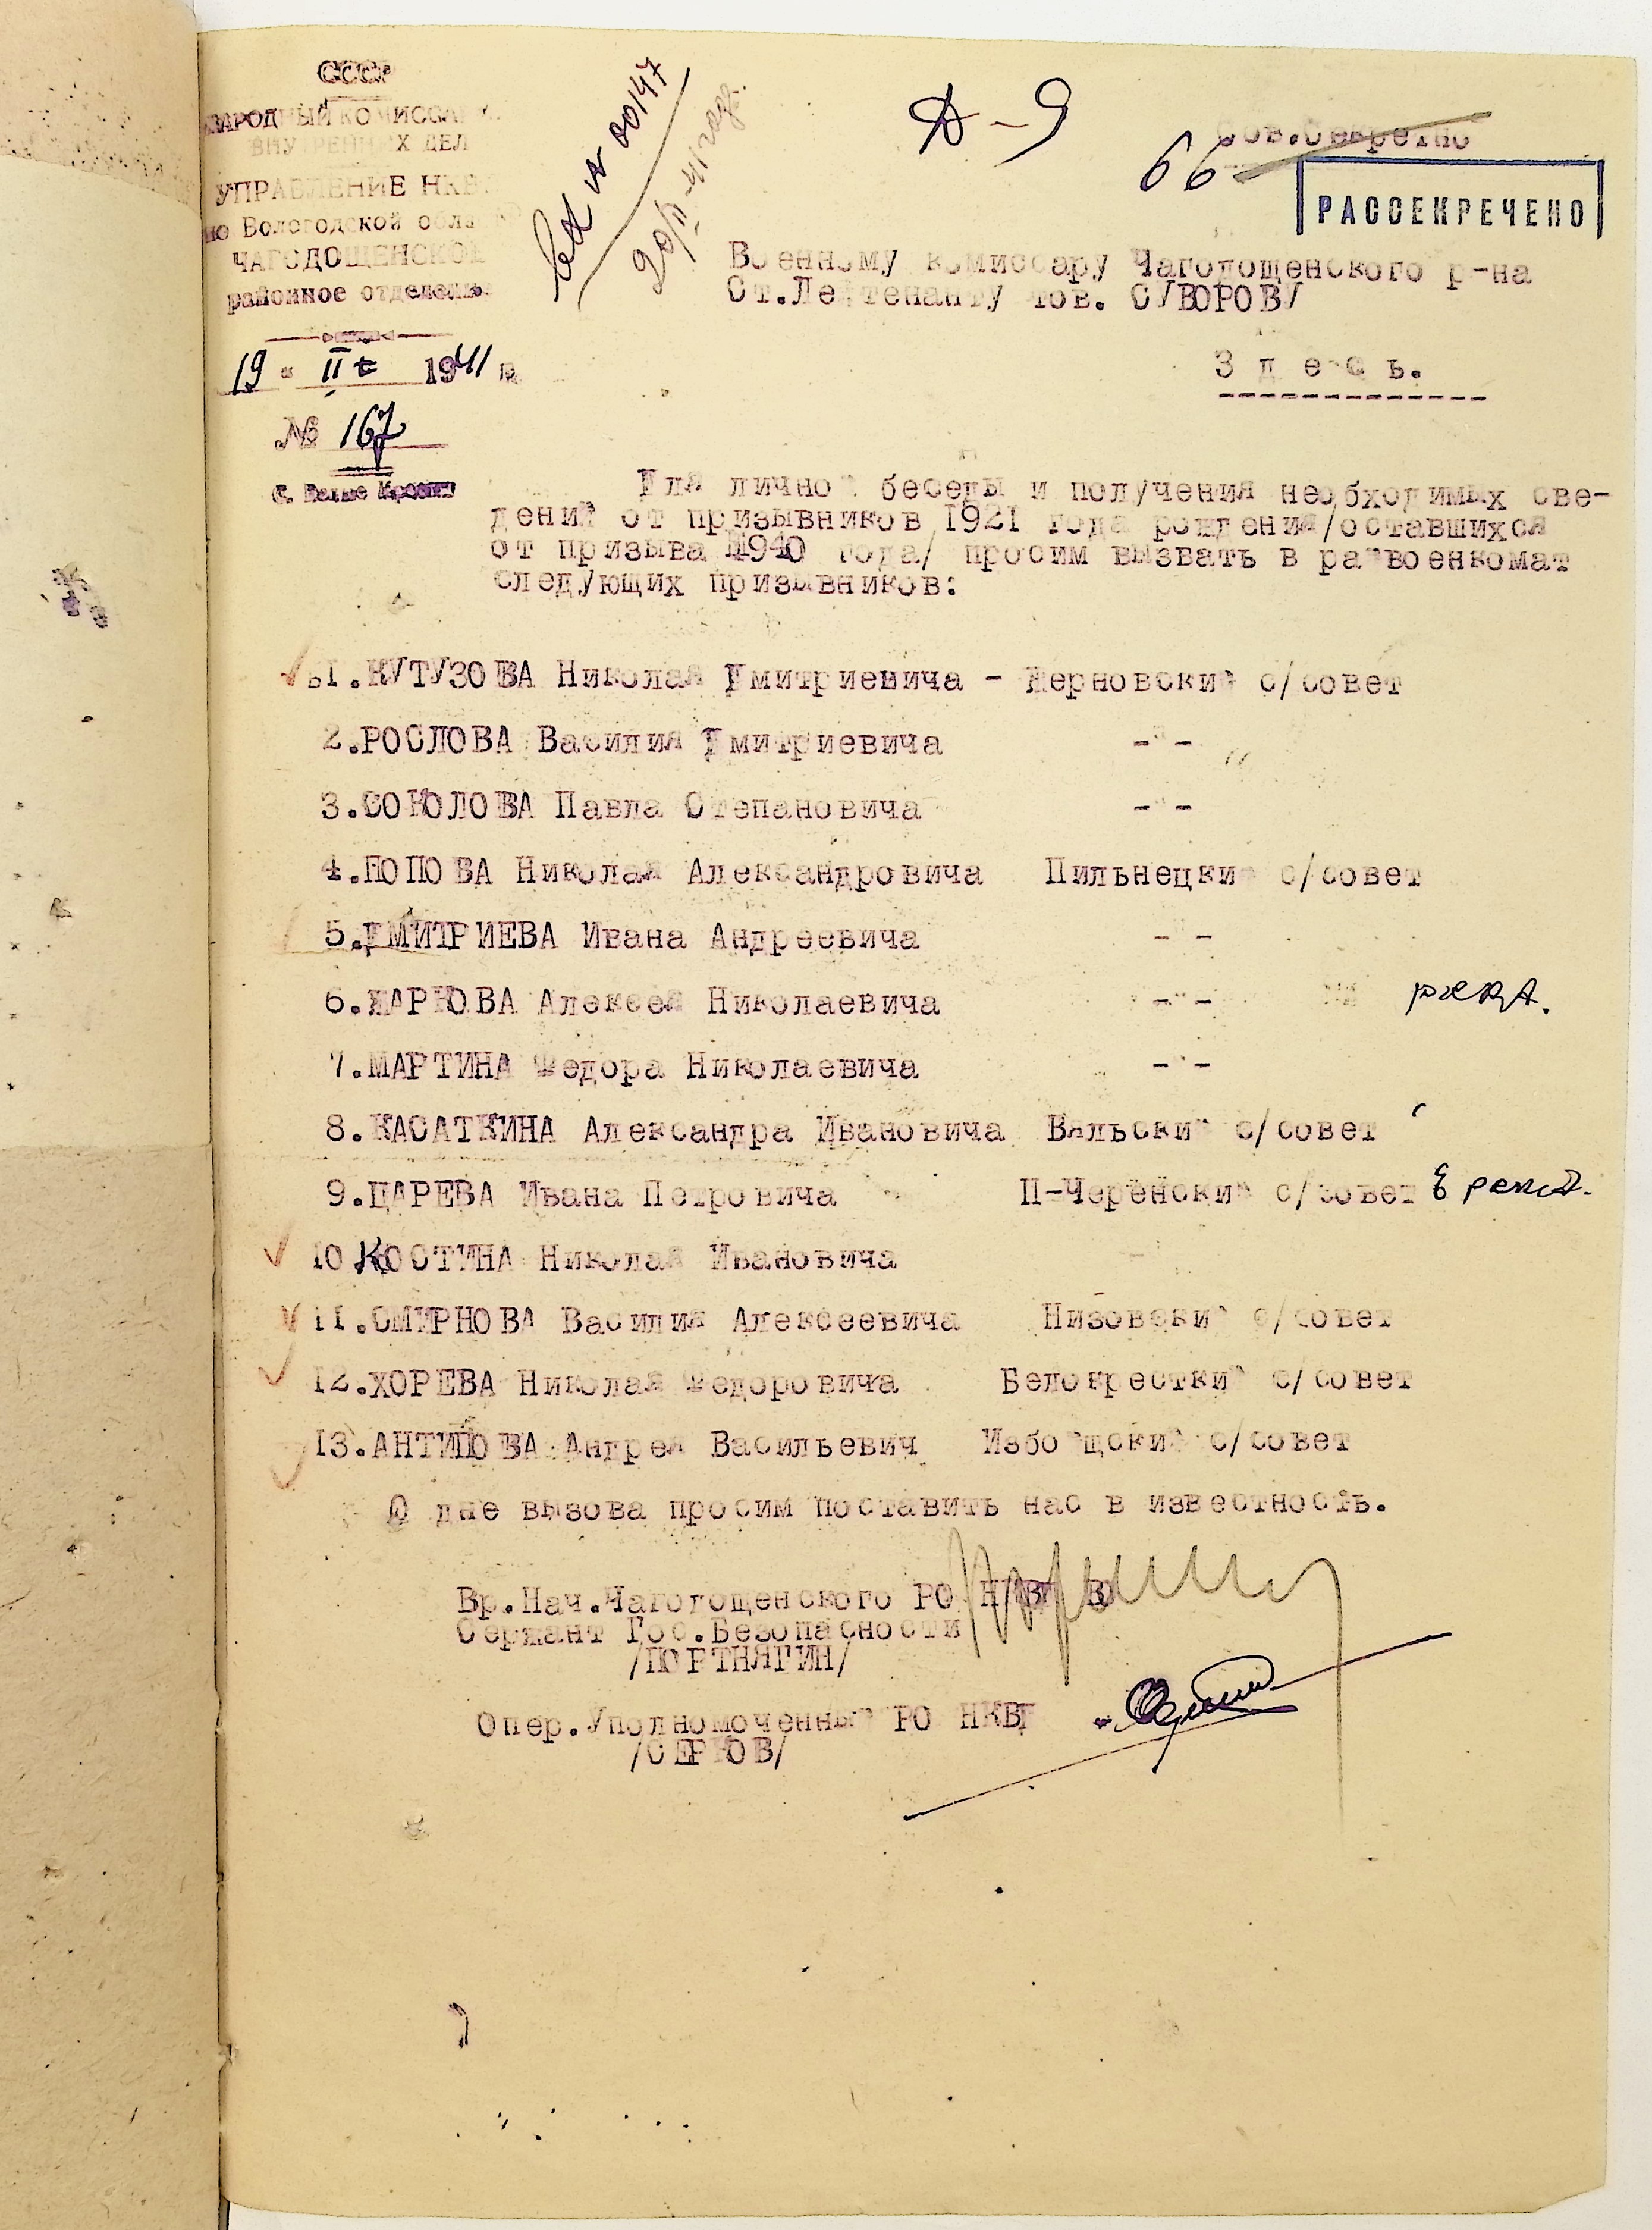 СССР
НАРОДНЫЙ КОМИССАРИАТ
ВНУТРЕННИХ ДЕЛ
УПРАВЛЕНИЕ НКВД
по Вологодской области
ЧАГОДОЩЕНСКОЕ
районное отделение
19 - II 1941 г.
№ 167
с. Белые Кресты
Вх № 00147
20/II-41 года.
Д-9
66
Сов.Секретно
РАССЕКРЕЧЕНО
Военному комиссару Чагодощенского р-на
Ст.Лейтенанту тов. СУВОРОВУ
З д е с ь.
Для личной беседы и получения необходимых све-
дений от призывников 1921 года рождения/оставшихся
от призыва 1940 года/ просим вызвать в райвоенкомат
следующих призывников:
1.КУТУЗОВА Николая Дмитриевича - Мерновский с/совет
2.РОСЛОВА Василия Дмитриевича -"-
3.СОКОЛОВА Павла Степановича -"-
4.ПОПОВА Николая Александровича Пильнецкий с/совет
5.ДМИТРИЕВА Ивана Андреевича -"-
6.ЖАРКОВА Алексея Николаевича -"-
7.МАРТИНА Федора Николаевича -"-
8.КАСАТКИНА Александра Ивановича Вальский с/совет
9.ЦАРЕВА Ивана Петровича П-Черенский с/совет
10.КОСТИНА Николая Ивановича
11.СМИРНОВА Василия Алексеевича Низовский с/совет
12.ХОРЕВА Николая Федоровича Белокресткий с/совет
13.АНТИПОВА Андрея Васильевич Избоищский с/совет
О дне вызова просим поставить нас в известность.
Вр.Нач.Чагодощенского РО НКВД ВО
Сержант Гос.Безопасности
/ПОРТНЯГИН/
Опер.Уполномоченный РО НКВД
/СЕРКОВ/